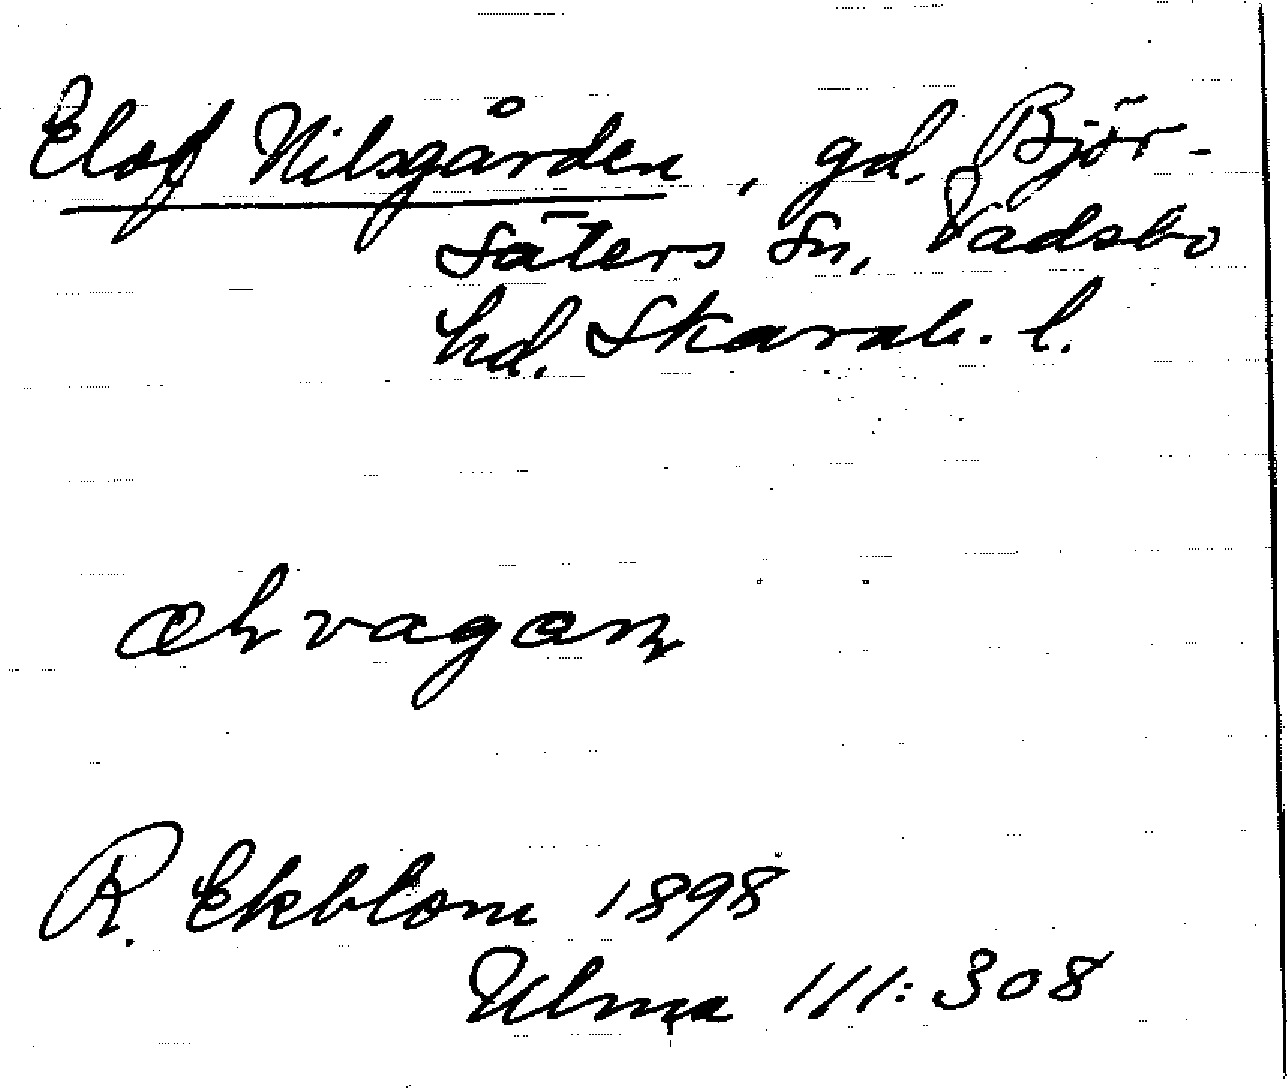 Elof Nilsgården, gd. Björ-
säters sn, Vadsbo
hd. Skarab. l.
R. Ekblom 1898
Ulma 111:308